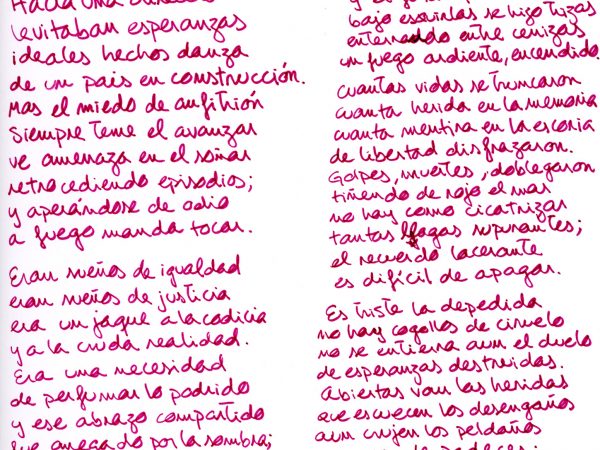 Hacia una
levitaban esperanzas
ideales hechos danza
de un pais en construcción.
Mas el miedo de anfitrión
siempre teme el avanzar
ve amenaza en el soñar
retrocediendo episodios;
y aperándose de odio
a fuego manda tocar.
Eran sueños de igualdad
eran sueños de justicia
era un jaque a la codicia
y a la cruda realidad.
Era una necesidad
de perfumar lo podrido
y ese abrazo compartido
fue anegado por la sombra;
bajo esquirlas se hizo trizas
enterrado entre cenizas
un fuego ardiente, encendido.
cuantas vidas se truncaron
cuanta herida en la memoria
cuanta mentira en la escoria
de libertad disfrazaron.
Golpes, muertes, doblegaron
tiñendo de rojo el mar
no hay como cicatrizar
tantas llagas supurantes;
el recuerdo lacerante
es difícil de apagar.
Es triste la depedida
no hay cogollos de ciruelo
no se entierra aun el duelo
de esperanzas destruidas.
Abiertas van las heridas
que escuecen los desengaños
aun crujen los peldaños